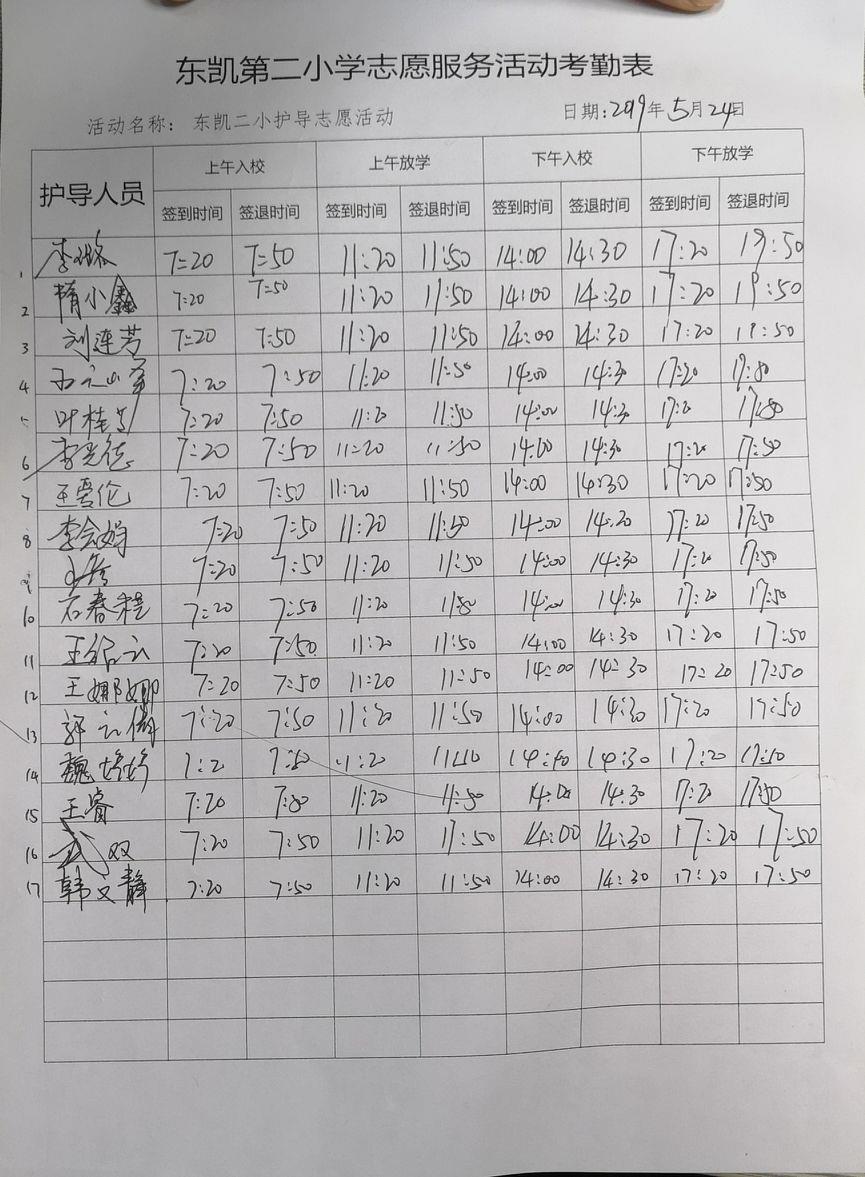 东凯第二小学志愿服务活动考勤表
活动名称： 东凯二小护导志愿活动 日期:2019年5月24日
护导人员 上午入校 上午放学 下午入校 下午放学
签到时间 签退时间 签到时间 签退时间 签到时间 签退时间 签到时间 签退时间
1 7:20 7:50 11:20 11:50 14:00 14:30 17:20 19:50
2 隋小鑫 7:20 7:50 11:20 11:50 14:00 14:30 17:20 19:50
3 刘连芳 7:20 7:50 11:20 11:50 14:00 14:30 17:20
4 7:20 7:50 11:20 11:50 14:00 14:30 17:20
5 叶桂 7:20 7:50 11:20 11:50 14:00 14:30 17:20
6 李 7:20 7:50 11:20 11:50 14:00 14:30 17:20 17:50
7 王雪伦 7:20 7:50 11:20 11:50 14:00 14:30 17:20 17:50
8 李会娟 7:20 7:50 11:20 11:50 14:00 14:20 17:20 17:50
9 7:20 7:50 11:20 11:50 14:00 14:30 17:20 17:50
10 石春程 7:20 7:50 11:20 11:50 14:00 14:30 17:20 17:50
11 王 7:20 7:50 11:20 11:50 14:00 14:30 17:20 17:50
12 王娜娜 7:20 7:50 11:20 11:50 14:00 14:30 17:20 17:50
13 7:20 7:50 11:20 11:50 14:00 14:30 17:20 17:50
14 魏婷婷 7:50 11:20 14:30 17:20
15 王睿 7:20 7:50 11:20 11:50 14:00 14:30 17:20 17:50
16 武双 7:20 7:50 11:20 11:50 14:00 14:30 17:20 17:50
17 韩文静 7:20 7:50 11:20 11:50 14:00 14:30 17:20 17:50